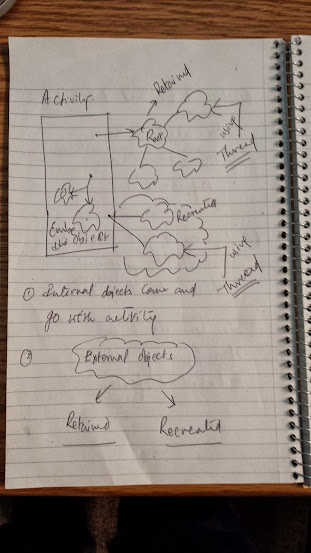 Activity.
Retained
Root
using
Thread
Obj
Recreated
Embe
dded Object
using
Thread
① Internal objects come and
go with activity
②
External objects
Retained
Recreated